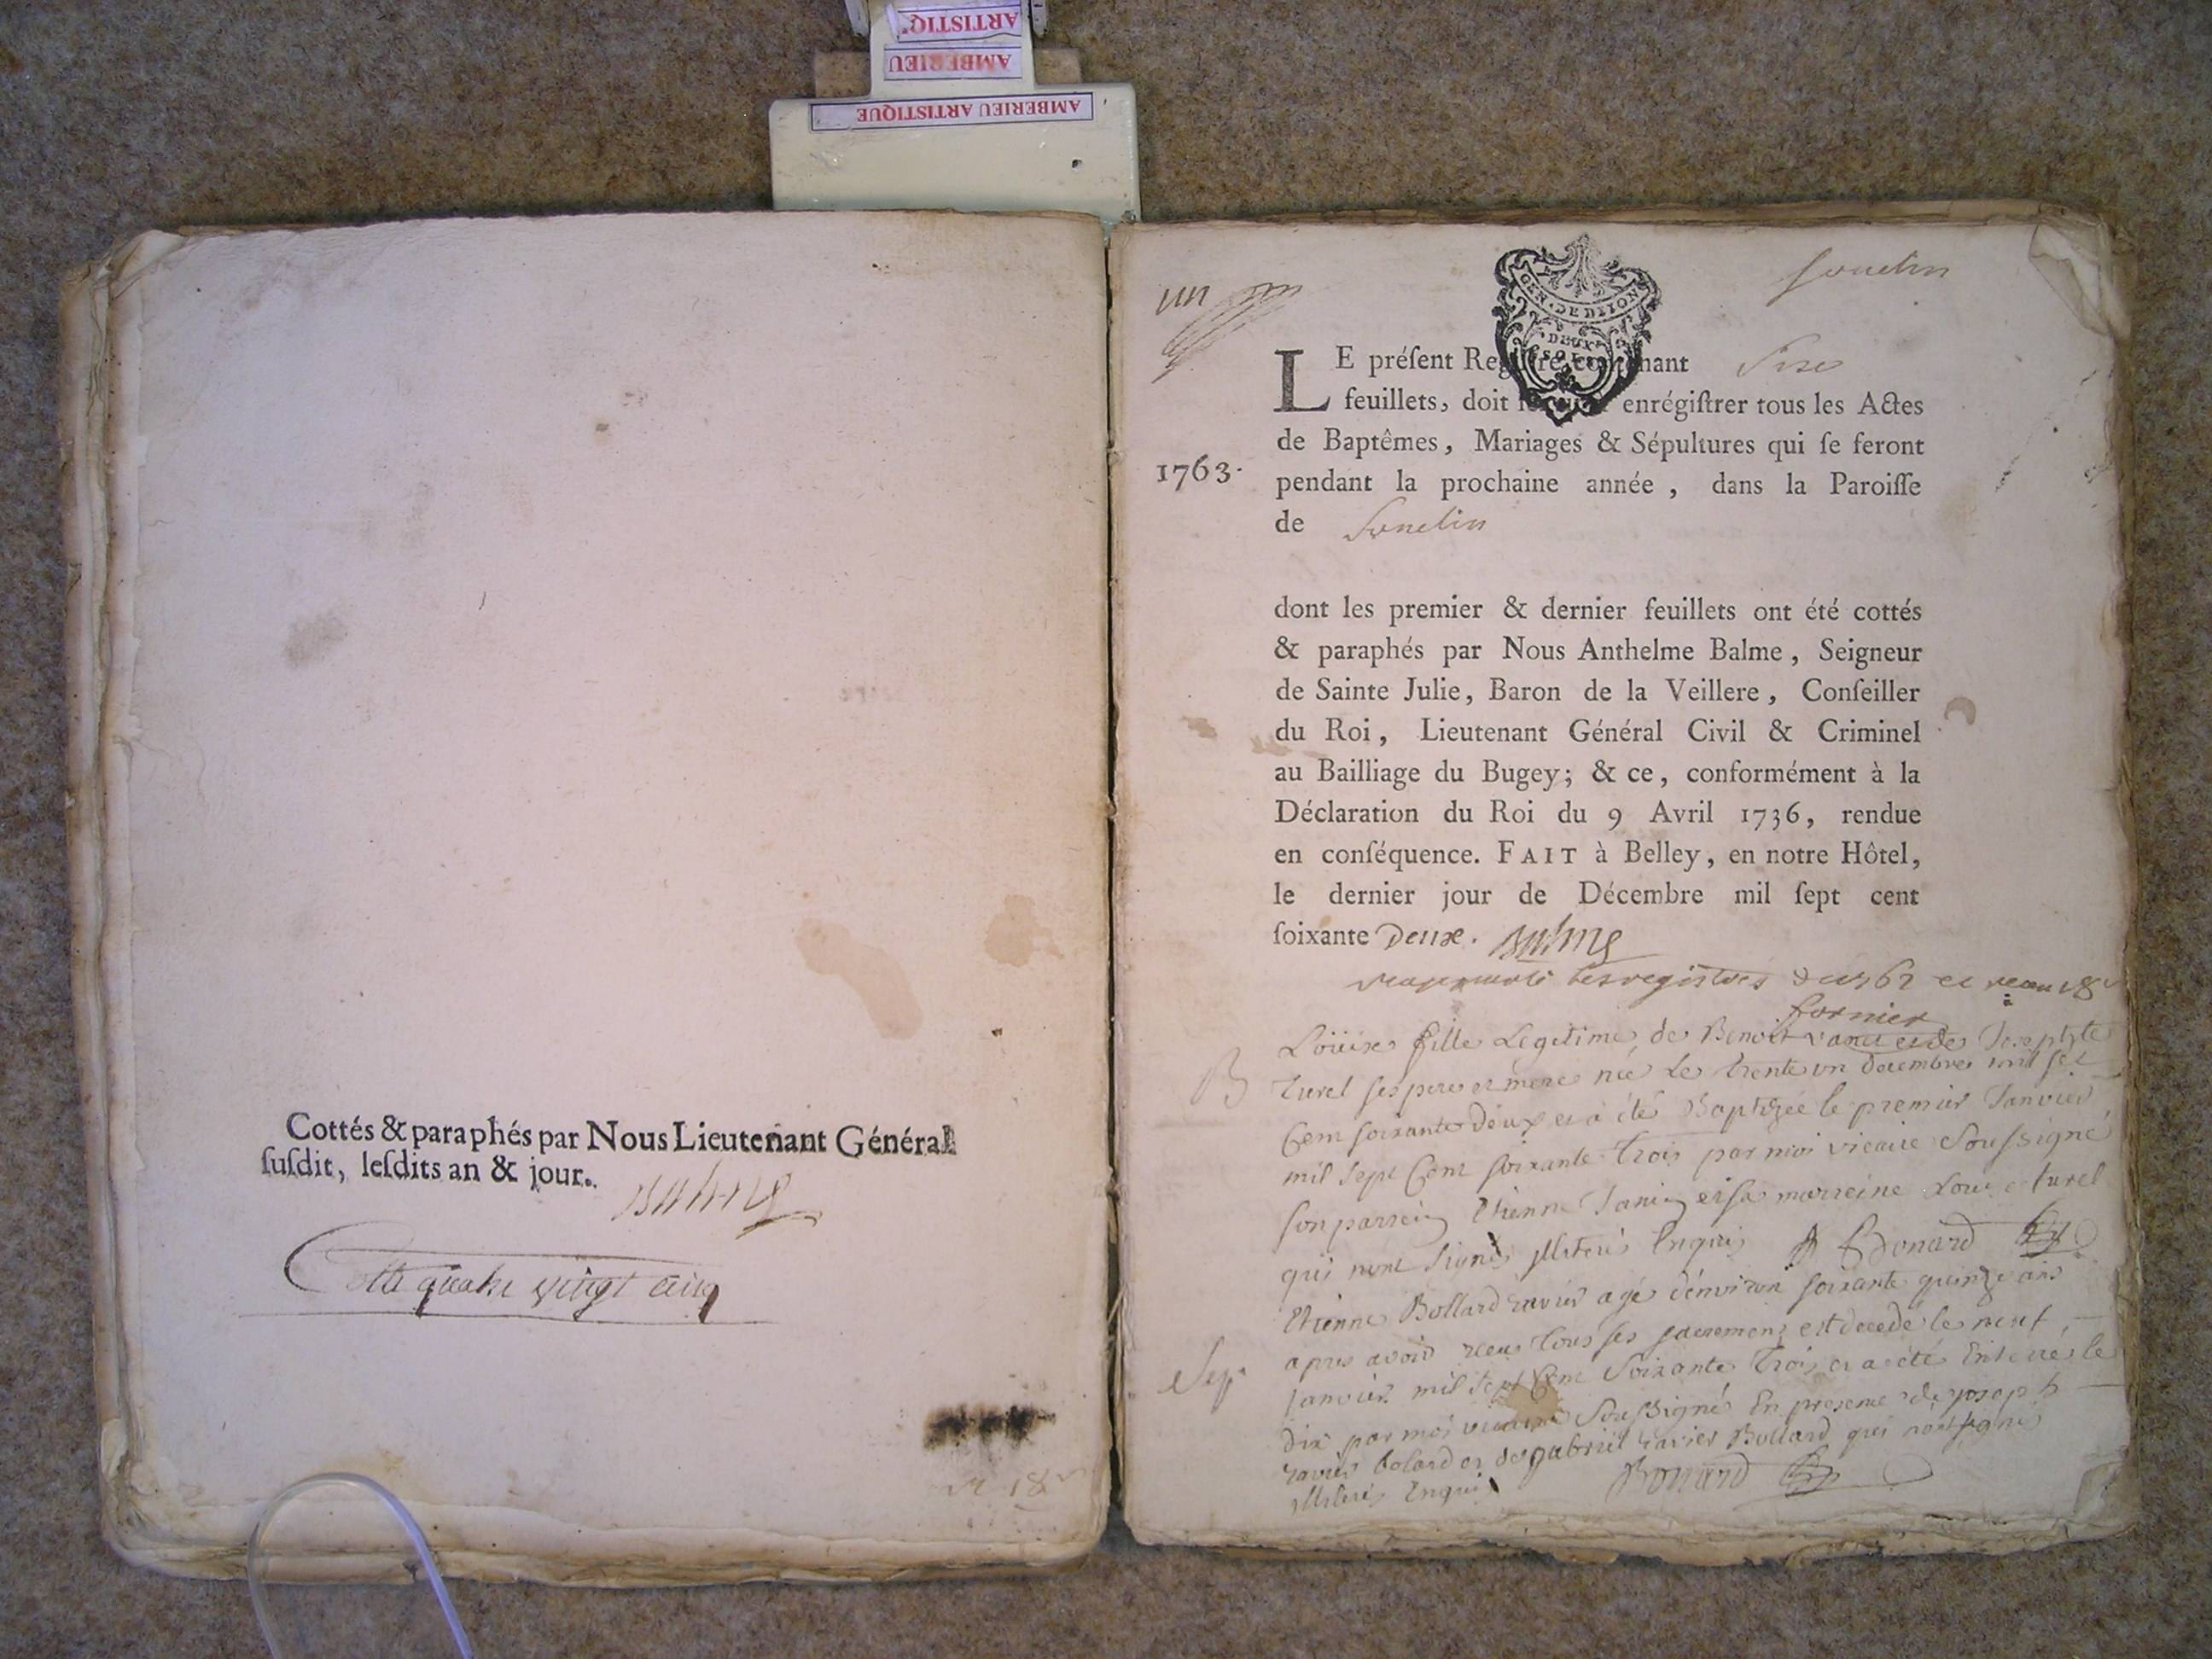 ARTISTIQ'
AMBERIEU
AMBERIEU ARTISTIQUE
Cottés & paraphés par Nous Lieutenant Général
ſuſdit, leſdits an & jour.
Balme
Cotte quatre vingt cinq
un
GEN. DE DIION
DEUX
SOLS
Souclin
LE préſent Regiſtre contenant Sise
feuillets, doit enrégiſtrer tous les Actes
de Baptêmes, Mariages & Sépultures qui ſe feront
1763.
pendant la prochaine année, dans la Paroiſſe
de Souclin
dont les premier & dernier feuillets ont été cottés
& paraphés par Nous Anthelme Balme, Seigneur
de Sainte Julie, Baron de la Veillere, Conſeiller
du Roi, Lieutenant Général Civil & Criminel
au Bailliage du Bugey; & ce, conformément à la
Déclaration du Roi du 9 Avril 1736, rendue
en conſéquence. FAIT à Belley, en notre Hôtel,
le dernier jour de Décembre mil ſept cent
ſoixante Deux. Balme
les registres
fornier
B
Loüise fille Legitime de Benoit Josephte
turel ses pere et mere née Le trente un decembre mil set
Cent soixante deux et a été Baptizée le premier Janvier
mil sept Cent soixante trois par moi vicaire Soussigné
son parrein Etienne Janin et sa marreine Louise turel
qui nont signés illiterés Enquis Bonard
Etienne Bollard ravier agé d'environ soixante quinze ans
apres avoir receu tous ses sacremens est decedé le neuf
Sep.
Janvier mil sept Cent Soixante trois et a été Enterré le
dix par moi vicaire Soussigné En presence de joseph
ravier bolard et de gabriel ravier Bollard qui n'ont signé
illiterés Enquis Bonard